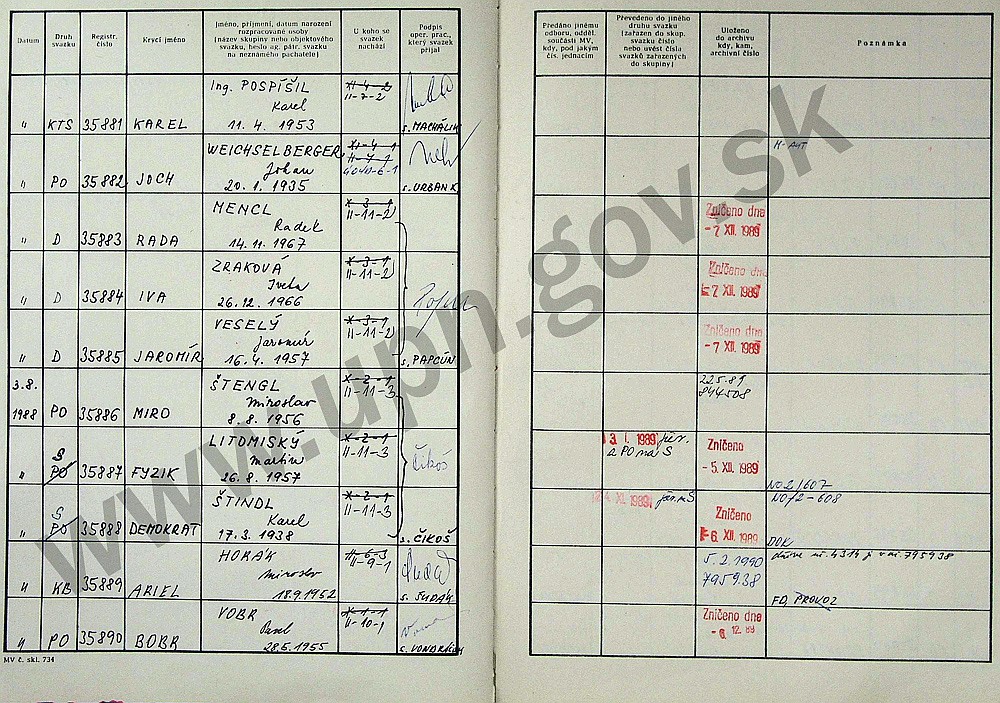 Datum
Druh svazku
Registr. číslo
Krycí jméno
Jméno, příjmení, datum narození
rozpracované osoby
(název skupiny nebo objektového
svazku, heslo ag. pátr. svazku
na neznámého pachatele)
U koho se
svazek
nachází
Podpis
oper. prac.,
který svazek
přijal
Předáno jinému
odboru, odděl.
součásti MV,
kdy, pod jakým
čís. jednacím
Převedeno do jiného
druhu svazku
(zařazen do skup.
svazku číslo
nebo uvést čísla
svazků zařazených
do skupiny)
Uloženo
do archivu
kdy, kam,
archivní číslo
Poznámka
Ing. POSPÍŠIL
Karel
11. 4. 1953
" KTS 35881 KAREL
XI-4-2
II-7-2
s. MACHÁLIK
WEICHSELBERGER
Johan
20. 1. 1935
" PO 35882 JOCH
XI-4-1
II-7-1
4040-6-1
s. URBAN K
H-AUT
MENCL
Radek
14. 11. 1967
" D 35883 RADA
X-3-1
II-11-2
Zničeno dne
-7. XII. 1989
ZRAKOVÁ
Iveta
26. 12. 1966
" D 35884 IVA
X-3-1
II-11-2
Zničeno dne
-7. XII. 1989
VESELÝ
Jaromír
16. 4. 1957
" D 35885 JAROMÍR
X-3-1
II-11-2
s. PAPCÚN
Zničeno dne
-7. XII. 1989
3. 8.
1988 PO 35886 MIRO
ŠTENGL
Miroslav
8. 8. 1956
X-2-1
II-11-3
225.89
844508
LITOMISKÝ
Martin
26. 8. 1957
S
" PO 35887 FYZIK
X-2-1
II-11-3
Čikoš
3. I. 1989 přev.
z PO na S
Zničeno
-5. XII. 1989
NO 2/607
ŠTINDL
Karel
17. 3. 1938
S
" PO 35888 DEMOKRAT
X-2-1
II-11-3
s. ČIKOŠ
XI. 1989
Zničeno
-6. XII. 1989
NO/2-608
DOK
HORÁK
Miroslav
18. 9. 1952
" KB 35889 ARIEL
II-6-3
II-9-1
s. SUDÁK
5. 2. 1990
795938
FD, PROVOZ
VOBR
Pavel
28. 5. 1955
" PO 35890 BOBR
X-1-1
II-10-1
s. VONDRÁČEK
Zničeno dne
-6. 12. 89
MV č. skl. 734
www.upn.gov.sk